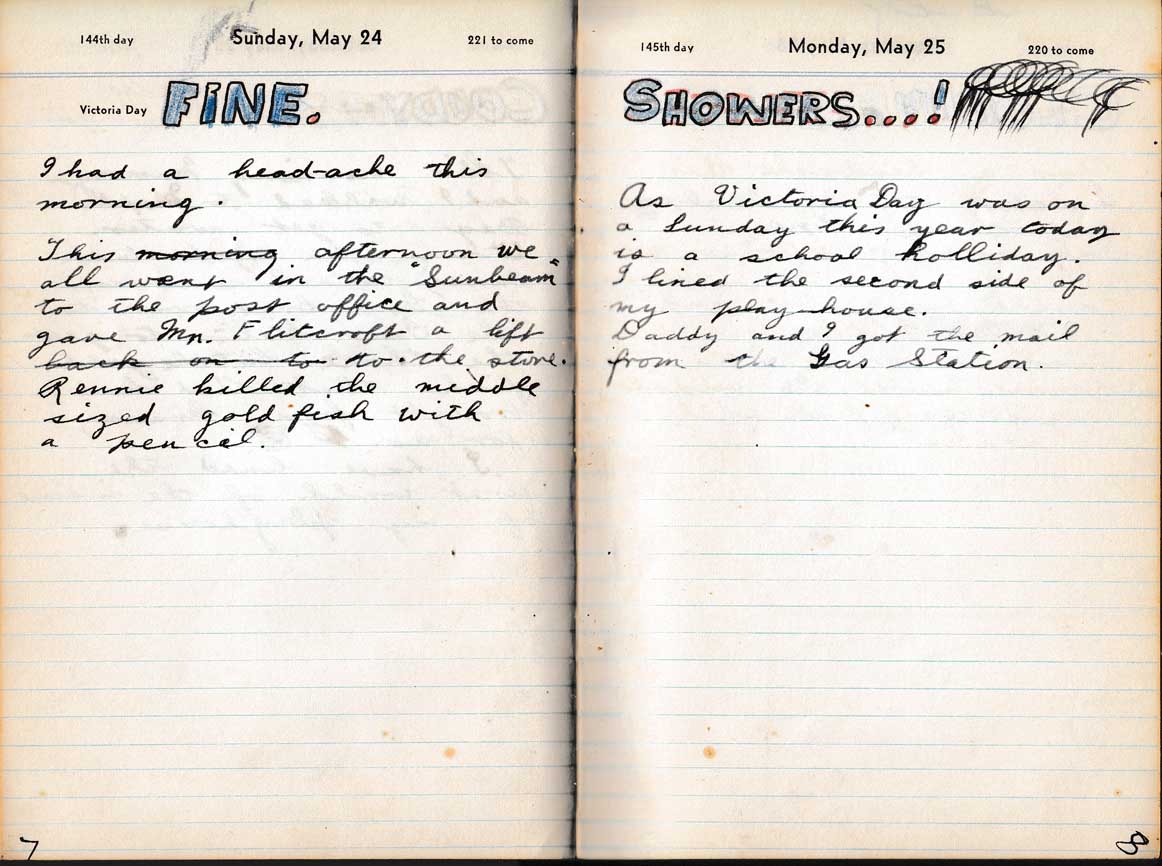 144th day
Sunday, May 24
221 to come
Victoria Day
FINE.
I had a head-ache this
morning.
This morning afternoon we
all went in the "Sunbeam"
to the post office and
gave Mr. Flitcroft a lift
back on to to the store.
Rennie killed the middle
sized gold fish with
a pencil.
7
145th day
Monday, May 25
220 to come
SHOWERS....!
As Victoria Day was on
a Sunday this year today
is a school holliday.
I lined the second side of
my play-house.
Daddy and I got the mail
from the Gas Station.
8